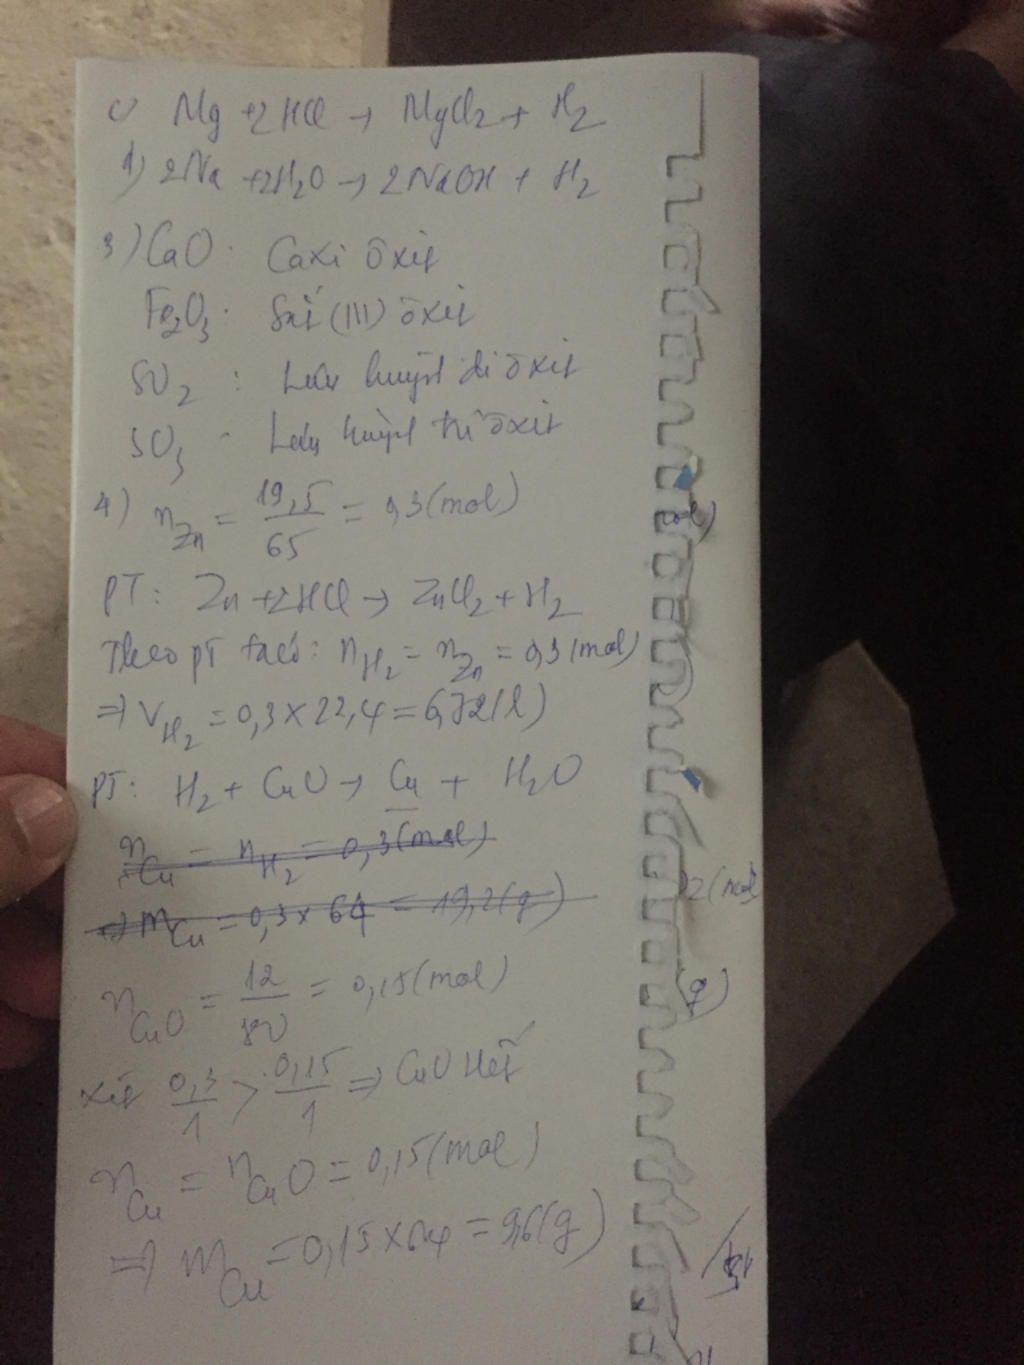 c) Mg + 2HCl → MgCl2 + H2
d) 2Na + 2H2O → 2NaOH + H2
3) CaO : Caxi ôxit
Fe2O3 : Sắt (III) ôxit
SO2 : Lưu huỳnh đi ôxit
SO3 - Lưu huỳnh tri ôxit
4) nZn = 19,5/65 = 0,3 (mol)
PT: Zn + 2HCl → ZnCl2 + H2
Theo pT ta có: nH2 = nZn = 0,3 (mol)
⇒ VH2 = 0,3 × 22,4 = 6,72 (l)
PT: H2 + CuO → Cu + H2O
nCu = nH2 = 0,3 (mol)
⇒ mCu = 0,3 × 64 = 19,2 (g)
2 (mol
nCuO = 12/80 = 0,15 (mol)
g)
Xét 0,3/1 > 0,15/1 ⇒ CuO Hết
nCu = nCuO = 0,15 (mol)
⇒ mCu = 0,15 × 64 = 9,6 (g)